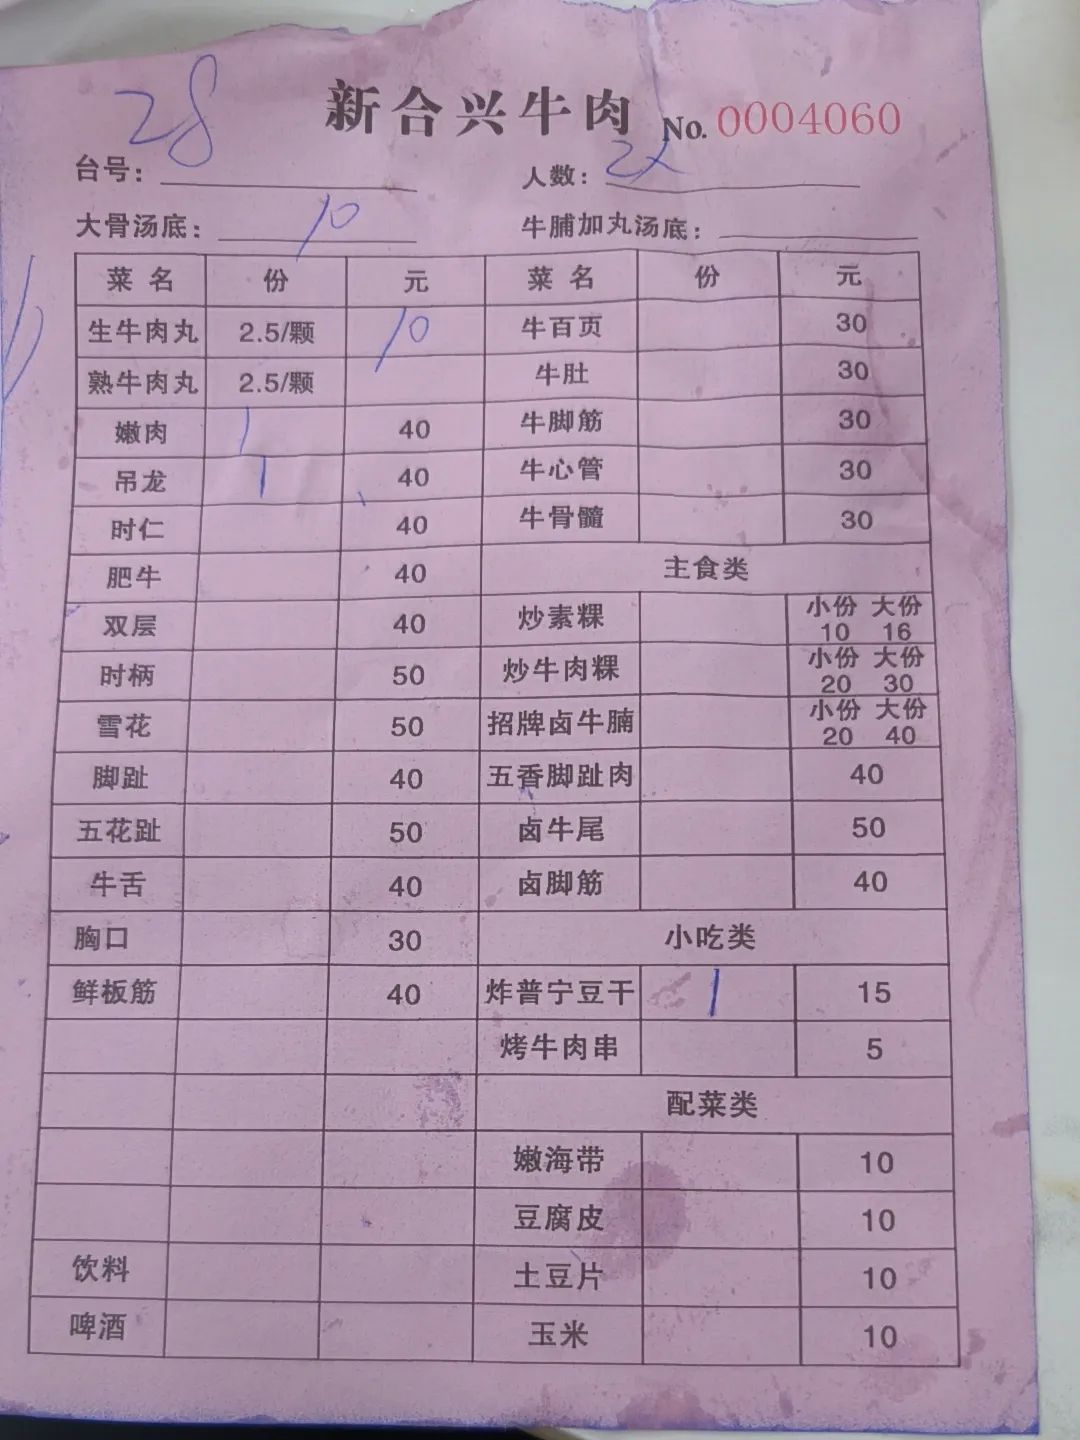 28
新合兴牛肉 No. 0004060
台号： 人数： 2人
大骨汤底： 10 牛脯加丸汤底：
菜名 份 元 菜名 份 元
生牛肉丸 2.5/颗 10 牛百页 30
熟牛肉丸 2.5/颗 牛肚 30
嫩肉 1 40 牛脚筋 30
吊龙 1 40 牛心管 30
时仁 40 牛骨髓 30
肥牛 40 主食类
双层 40 炒素粿 小份 10 大份 16
时柄 50 炒牛肉粿 小份 20 大份 30
雪花 50 招牌卤牛腩 小份 20 大份 40
脚趾 40 五香脚趾肉 40
五花趾 50 卤牛尾 50
牛舌 40 卤脚筋 40
胸口 30 小吃类
鲜板筋 40 炸普宁豆干 1 15
烤牛肉串 5
配菜类
嫩海带 10
豆腐皮 10
饮料 土豆片 10
啤酒 玉米 10